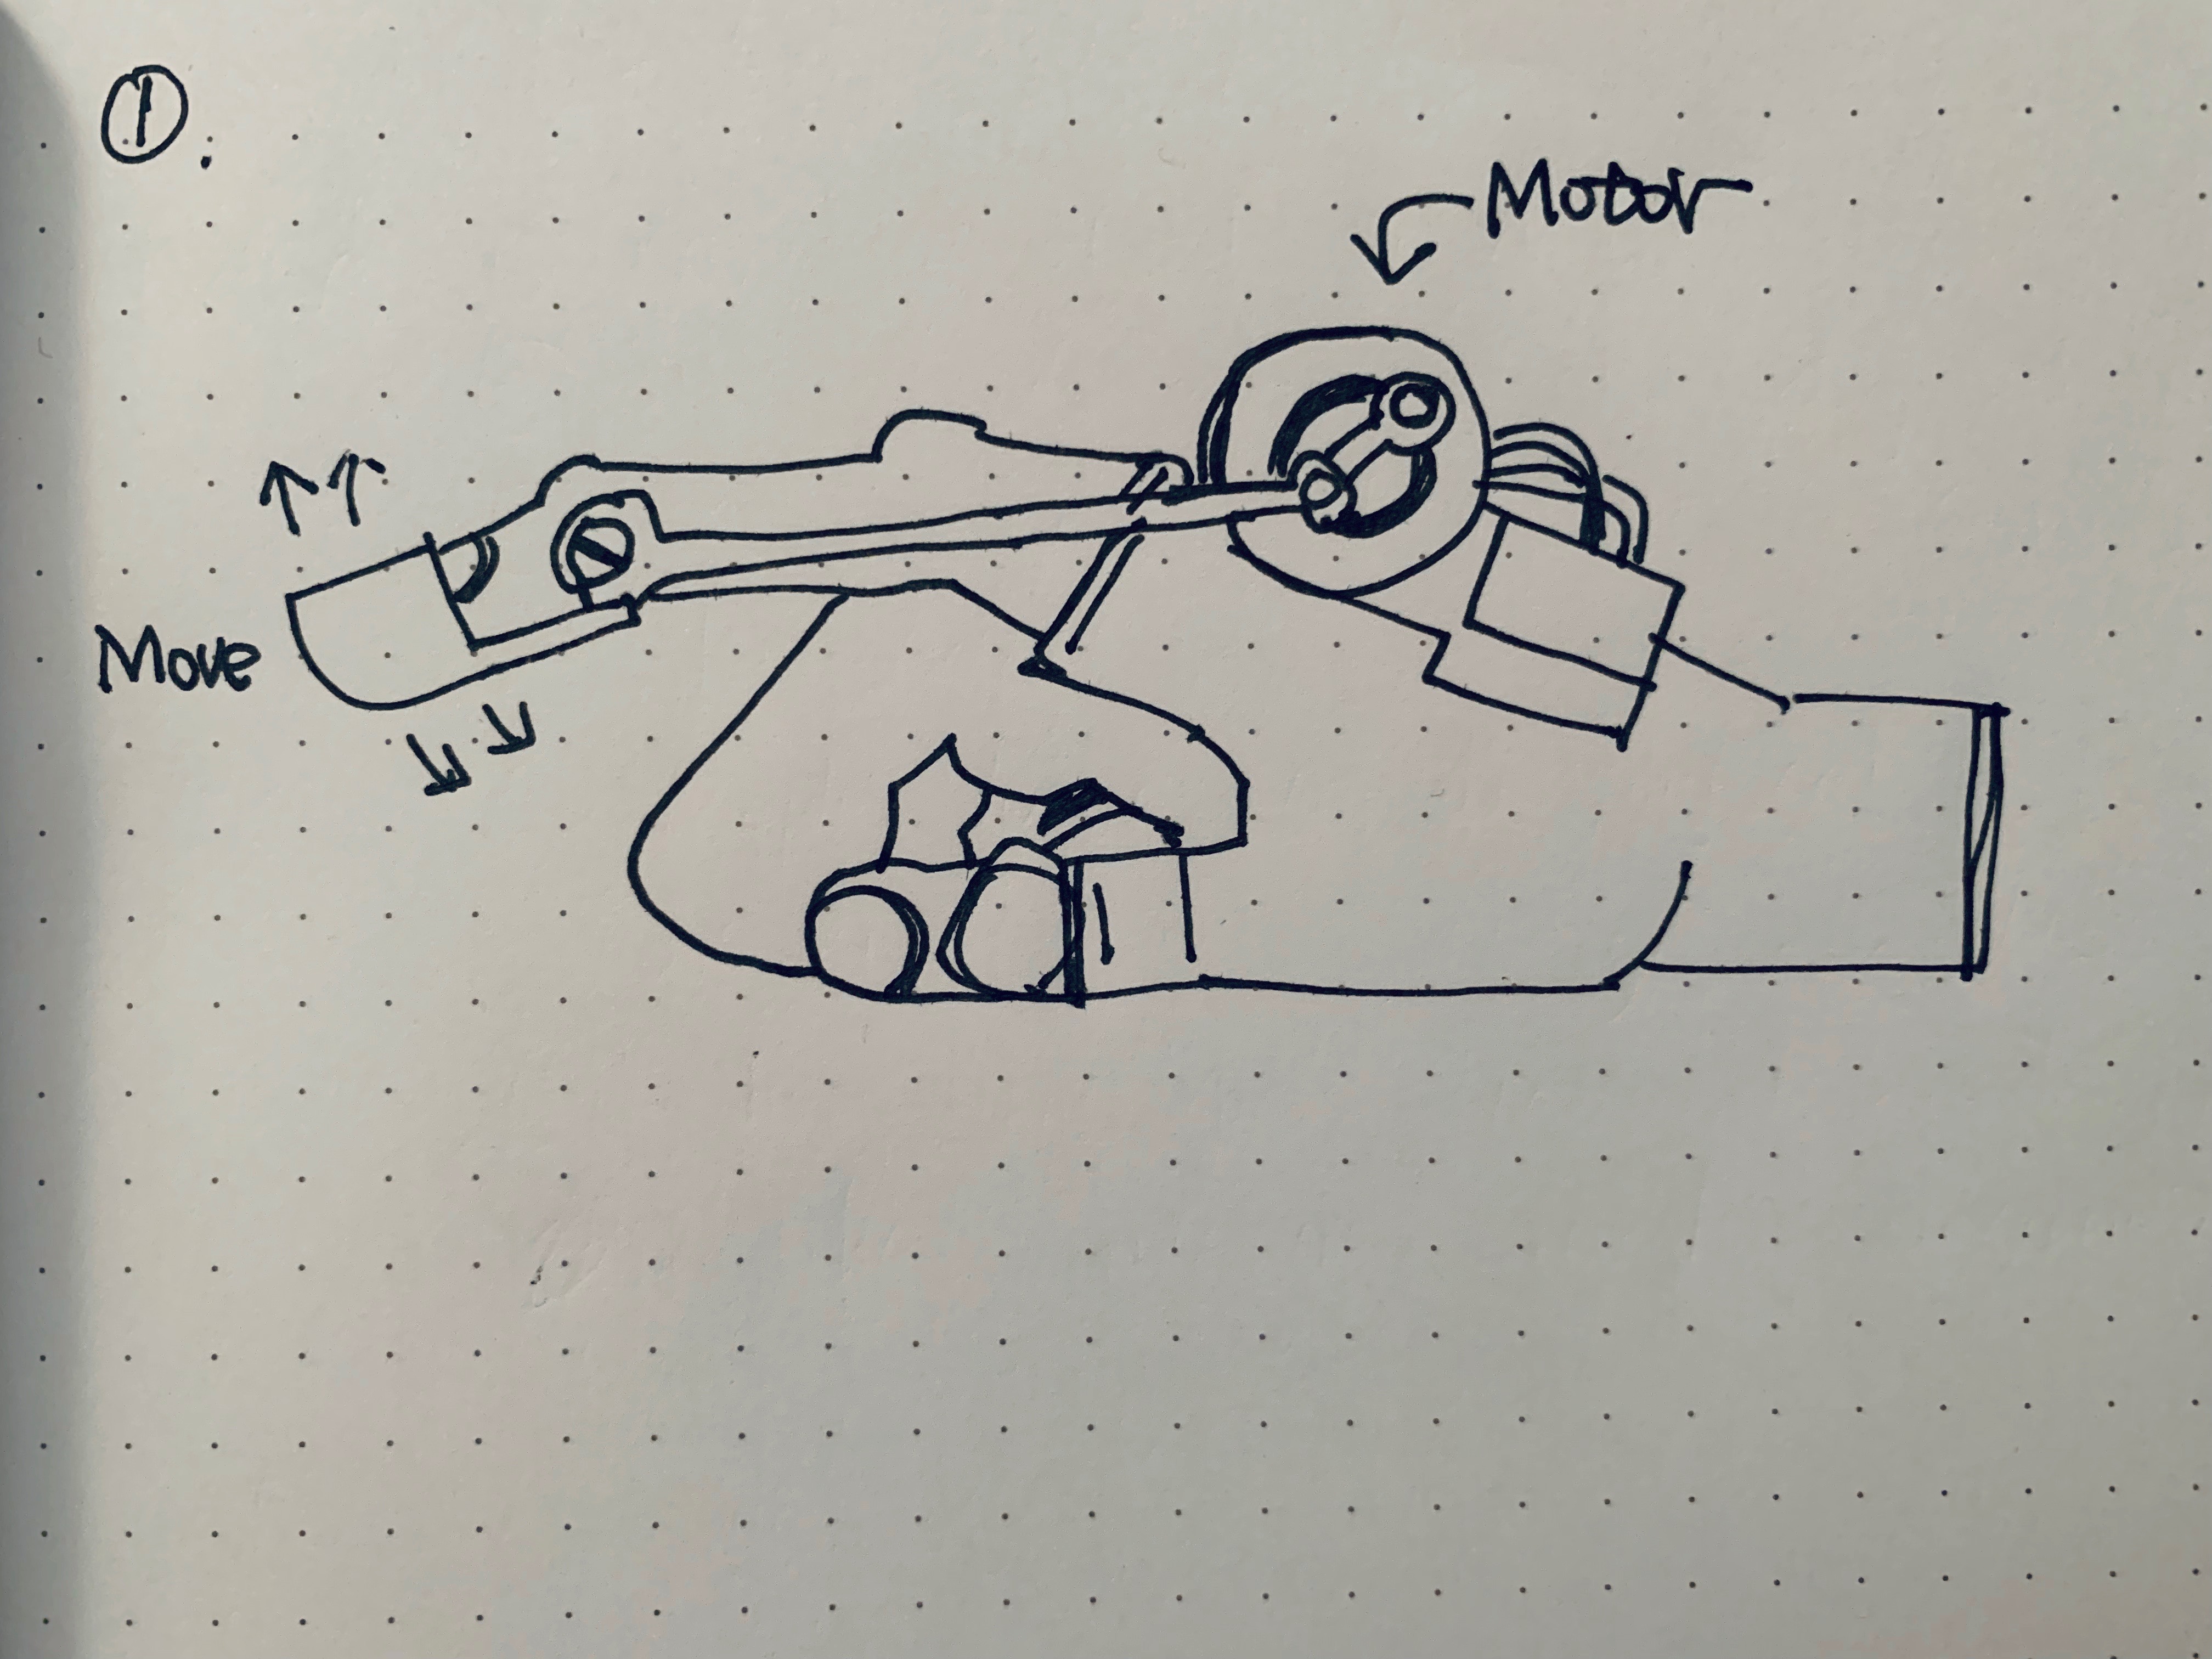 ①.
Motor
Move